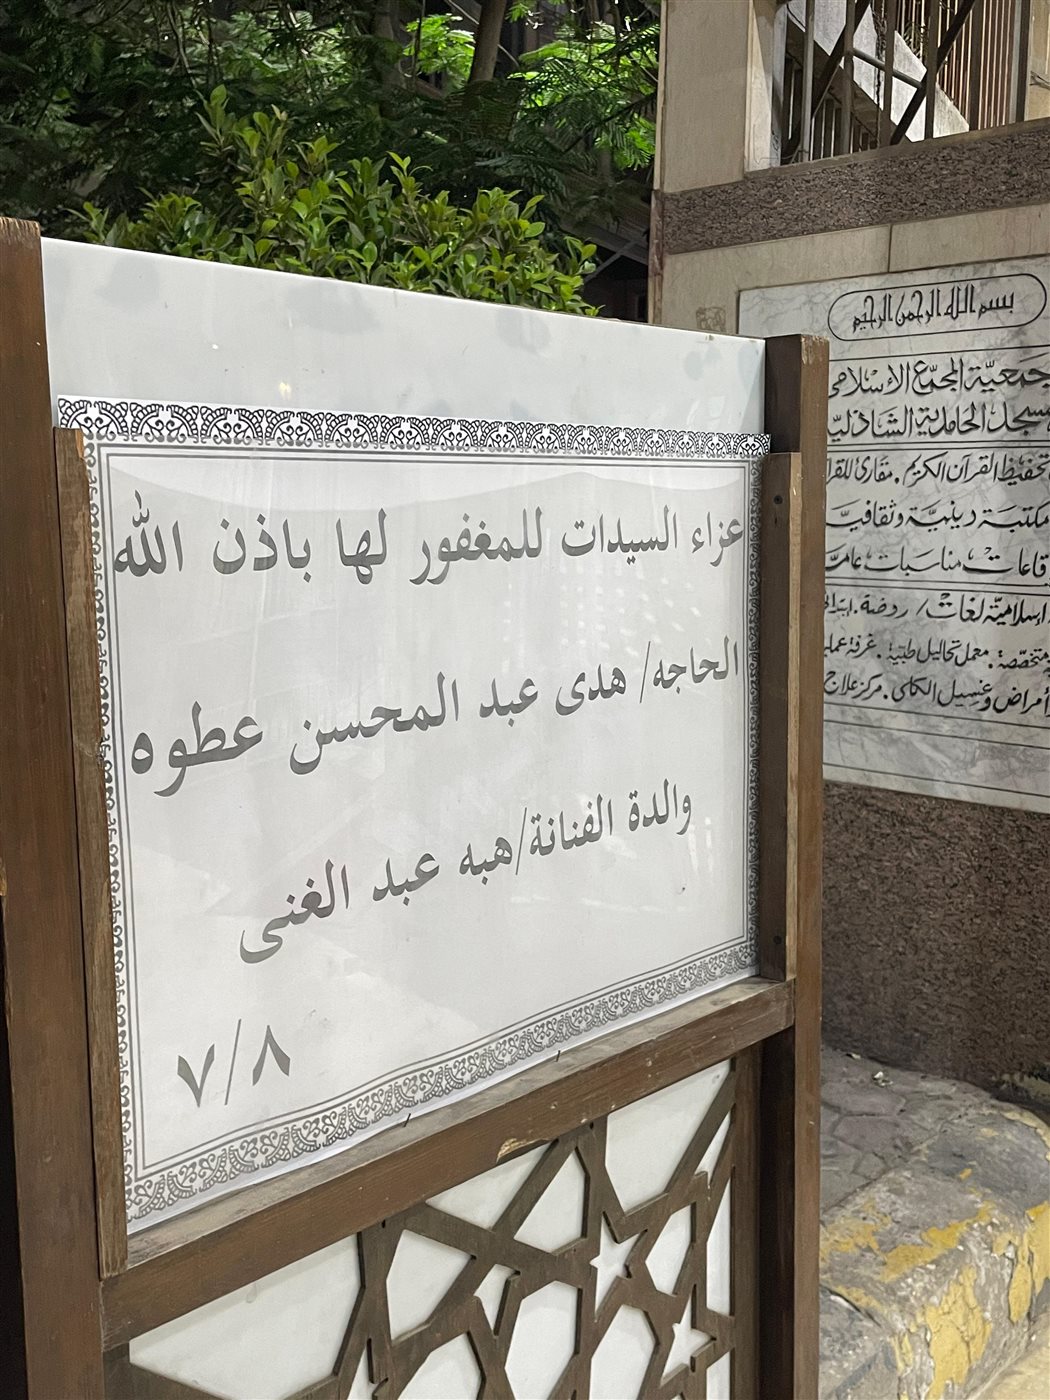 عزاء السيدات للمغفور لها باذن الله
الحاجه/ هدى عبد المحسن عطوه
والدة الفنانة/هبه عبد الغنى
٧/٨
بسم الله الرحمن الرحيم
جمعيّة المجمّع الإسلامى
مسجد الحامدية الشاذليّ
تحفيظ القرآن الكريم . مقارئ للقرآ
مكتبة دينيّة وثقافيّ
قاعات مناسبات عامّ
إسلاميّة لغات / روضة . ابتدا
متخصّصة . معمل تحاليل طبّية . غرفة عمليا
أمراض وغسيل الكلى . مركز علاج